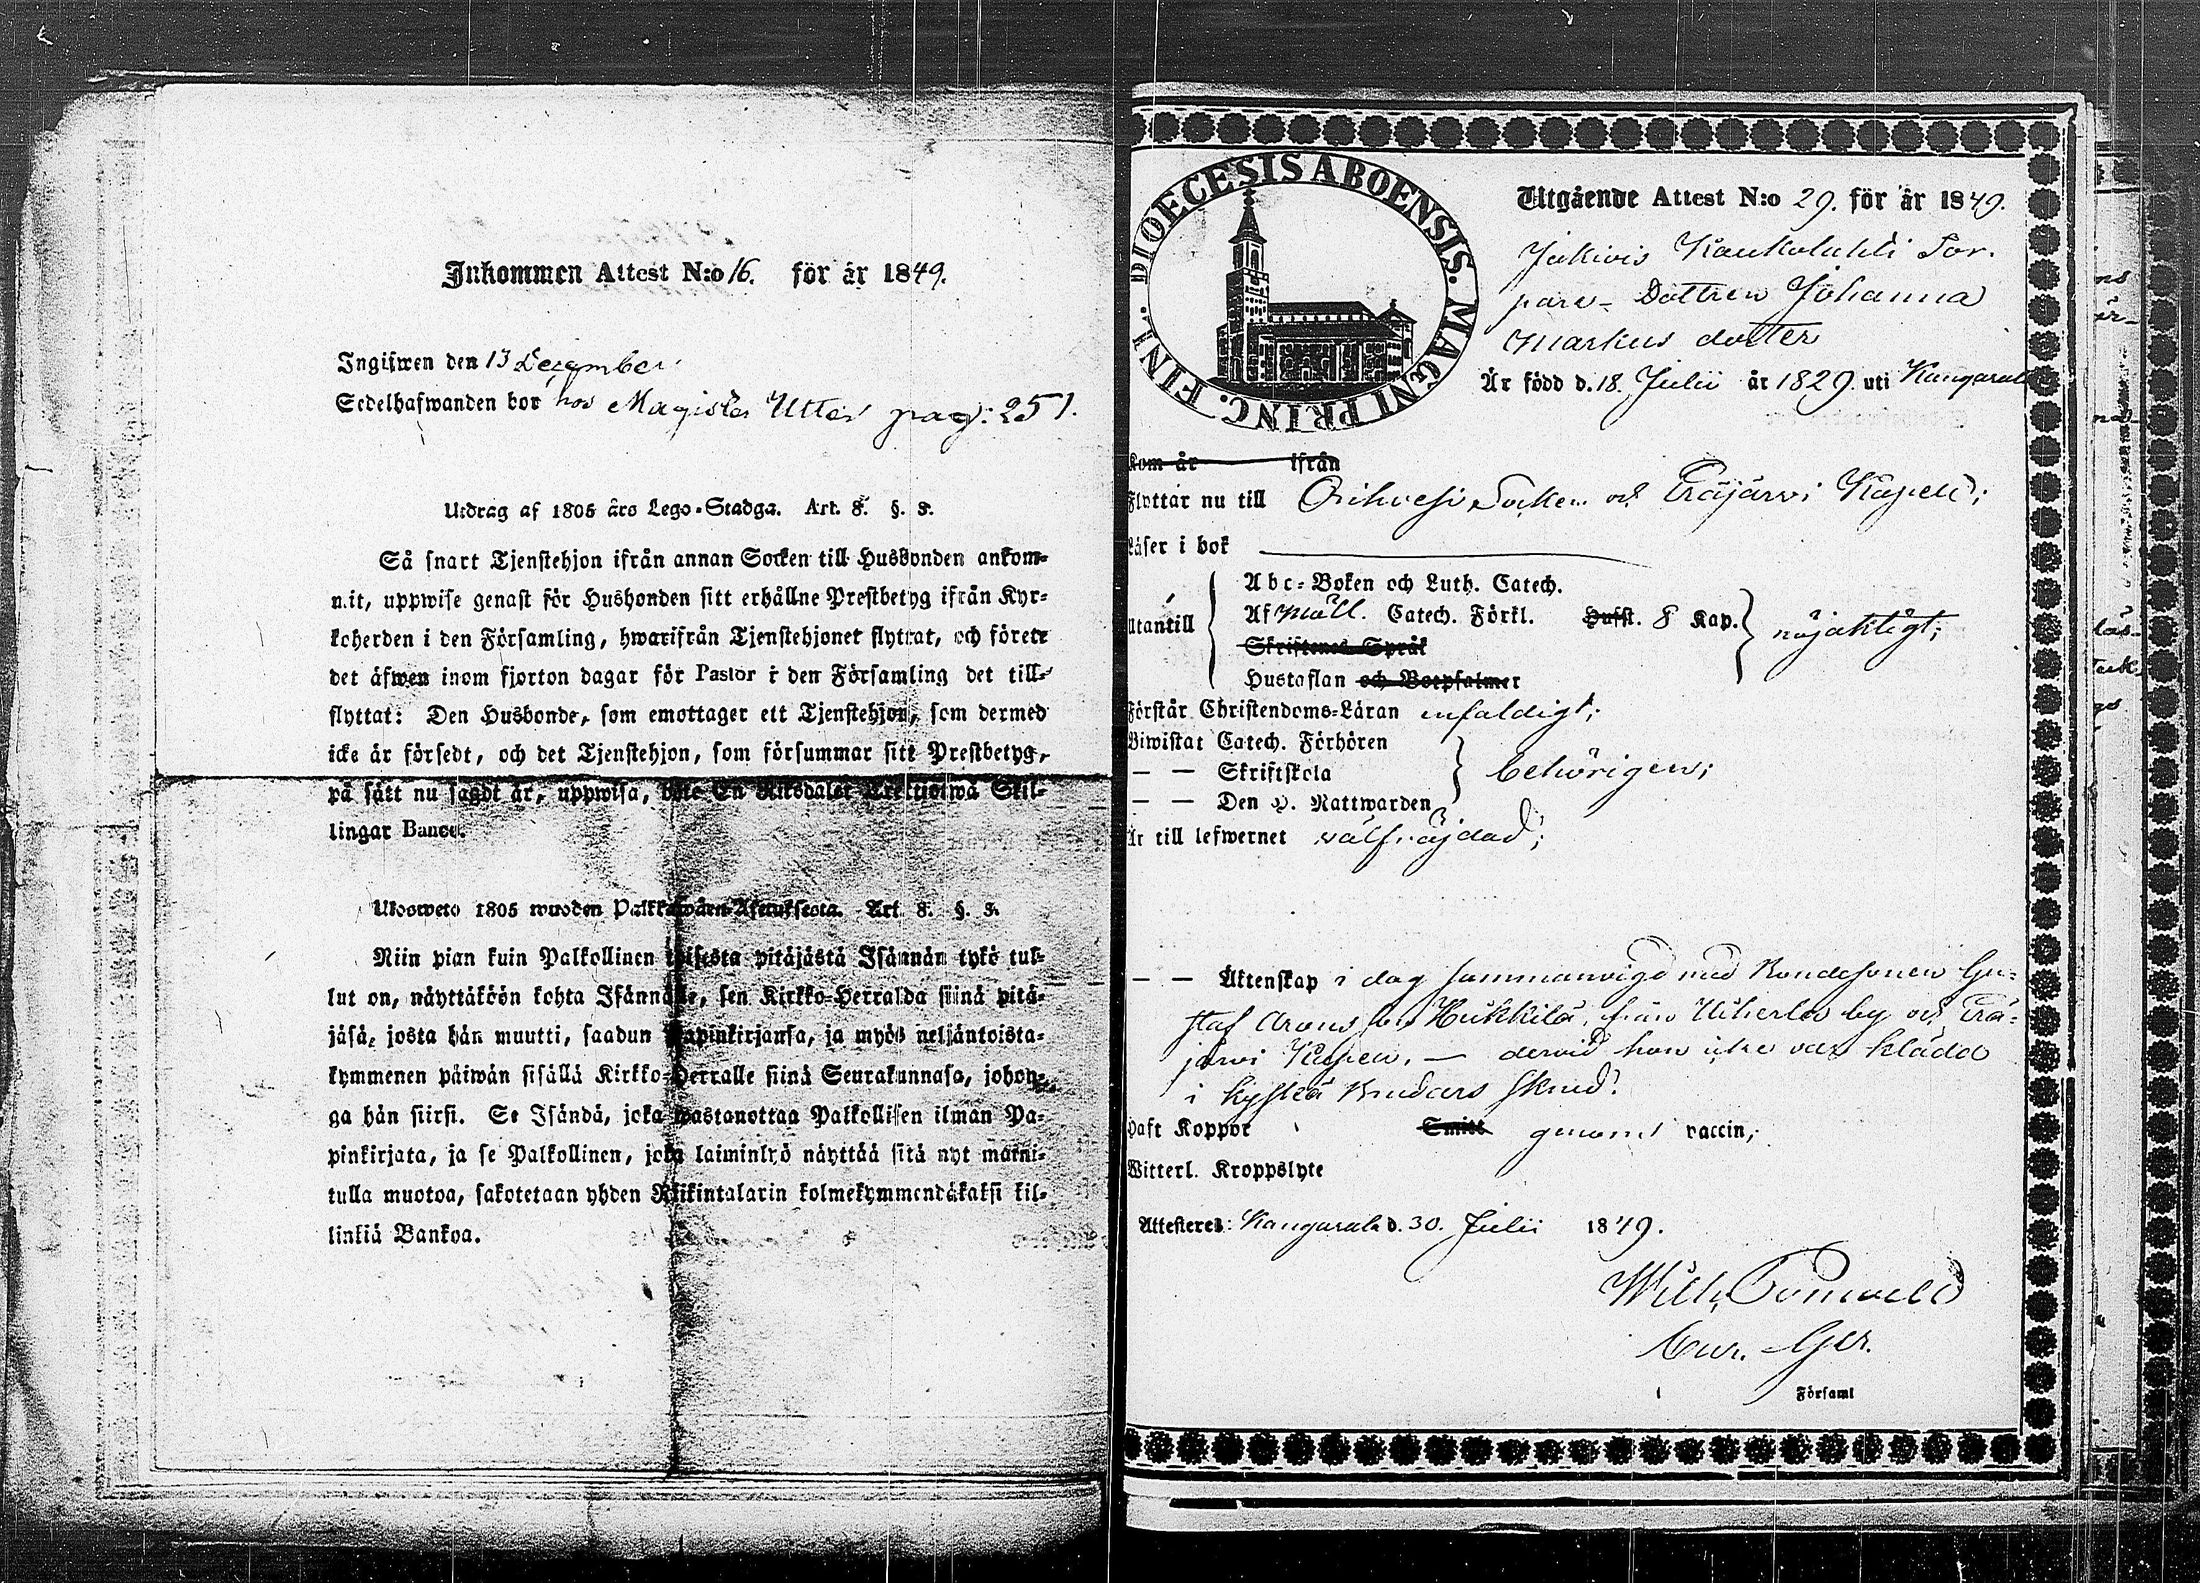 Inkommen Attest N:o 16. för år 1849.
Ingifwen den 13 December
Sedelhafwanden bor hos Magister Utter pag: 251.
Utdrag af 1805 års Lego-Stadga. Art. 8. §. 8.
Så snart Tjenstehjon ifrån annan Socken till Husbonden ankom-
mit, uppwise genast för Husbonden sitt erhållne Prestbetyg ifrån Kyr-
koherden i den Församling, hwarifrån Tjenstehjonet flyttat, och förete
det äfwen inom fjorton dagar för Pastor i den Församling det till-
flyttat: Den Husbonde, som emottager ett Tjenstehjon, som dermed
icke är försedt, och det Tjenstehjon, som försummar sitt Prestbetyg,
på sätt nu sagdt är, uppwisa, böte En Riksdaler Trettiotwå Skil-
lingar Banco.
Ulosweto 1805 wuoden Palkkawäen-Asetuksesta. Art. 8. §. 8.
Niin pian kuin Palkollinen toisesta pitäjästä Isännän tykö tul-
lut on, näyttäköön kohta Isännälle, sen Kirkko-Herralda siinä pitä-
jäsä, josta hän muutti, saadun Papinkirjansa, ja myös neljäntoista-
kymmenen päiwän sisällä Kirkko-Herralle siinä Seurakunnasa, johon-
ga hän siirsi. Se Isändä, joka wastanottaa Palkollisen ilman Pa-
pinkirjata, ja se Palkollinen, joka laiminlyö näyttää sitä nyt mainit-
tulla muotoa, sakotetaan yhden Riikintalarin kolmekymmendäkaksi kil-
linkiä Bankoa.
DIOECESIS ABOENSIS. MAGNI PRINC. FINL.
Utgående Attest N:o 29. för år 1849.
Jukivis Kaukolahti Tor-
pare- Dottren Johanna
Markus dotter
Är född d. 18. Julii år 1829. uti Kangasala
Kom år ifrån
Flyttar nu till Orihvesi Socken och Eräjärvi Kapell;
Läser i bok
Abc-Boken och Luth. Catech.
Utantill Af Möll. Catech. Förkl. Hufst. 8 Kap. nöjaktigt;
Skriftenes Språk
Hustaflan och Botpsalmer
Förstår Christendoms-Läran enfaldigt;
Biwistat Catech. Förhören
— — Skriftskola behörigen;
— — Den H. Nattwarden
Är till lefwernet välfräjdad;
— — Äktenskap i dag sammanvigd med Bondesonen Gu-
staf Arons son Hukkila, från Uiherla by och Erä-
järvi Kapell, — dervid hon icke var klädd
i kyska Brudars skrud.
Haft Koppor Smitt genom vaccin;
Witterl. Kroppslyte
Attesteres: Kangasala d. 30. Julii 1849.
Wilh.
Cur. Ger.
Församl